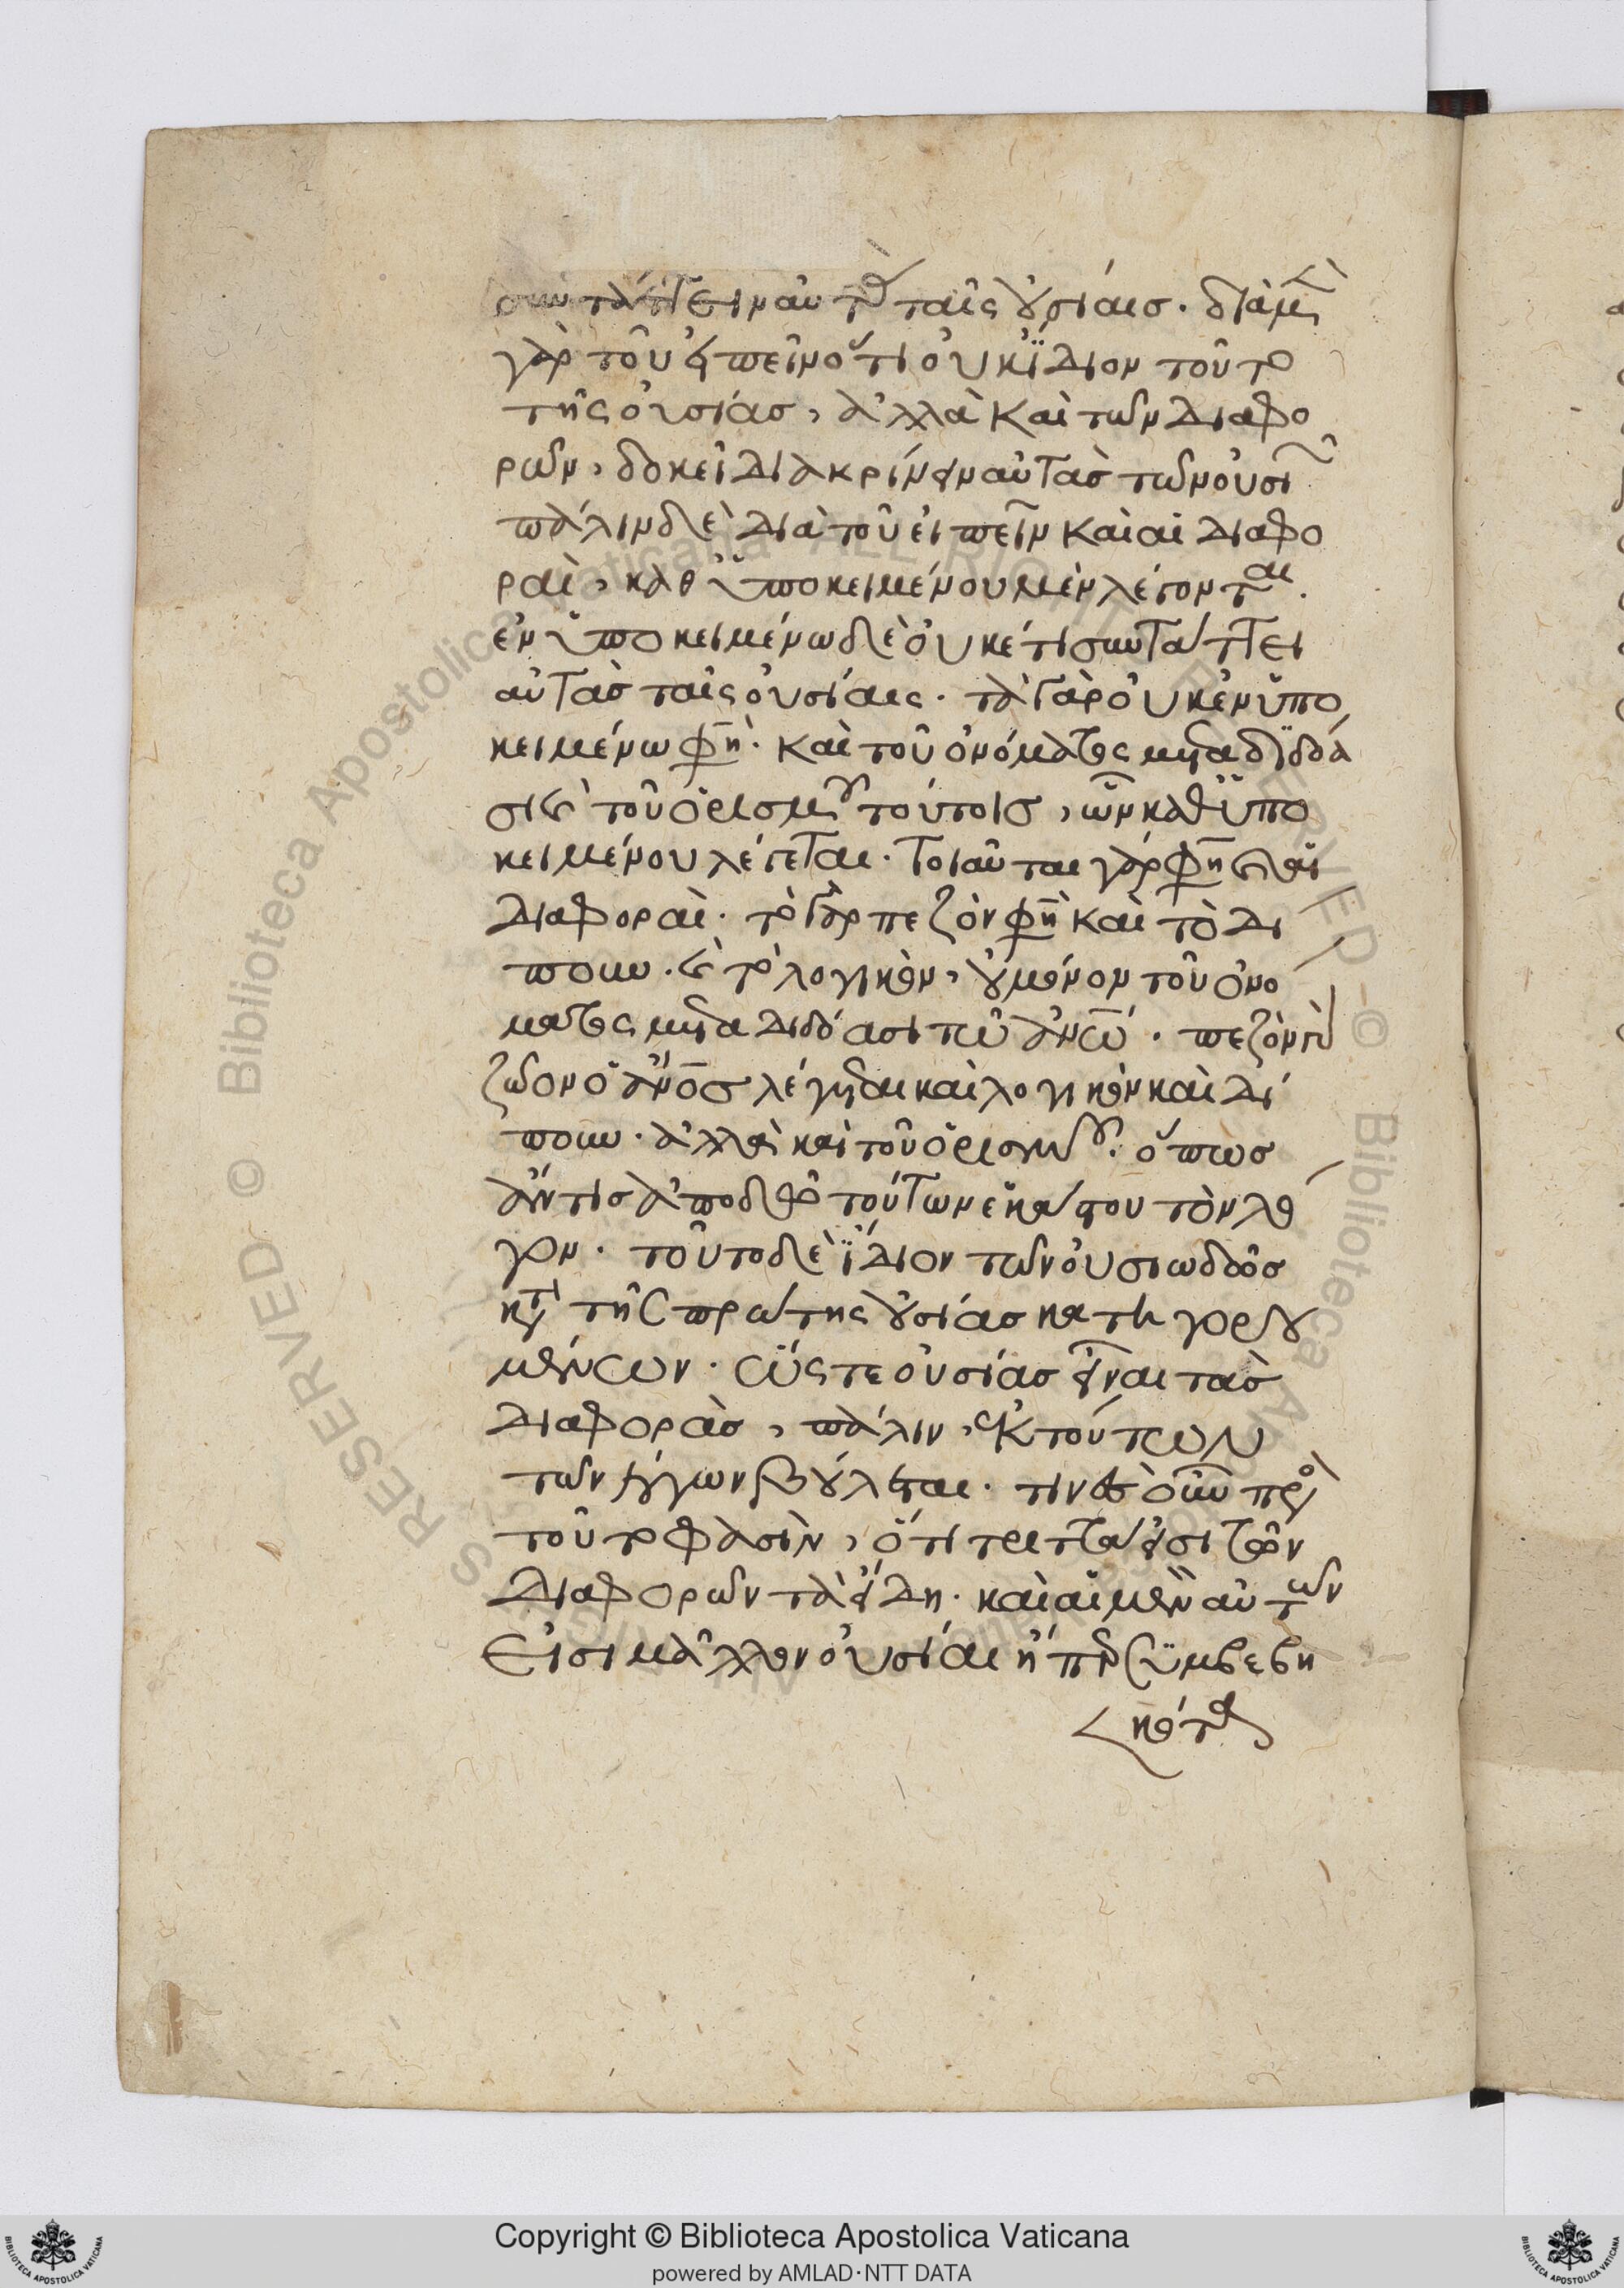 συντάττειν αὐτὰς ταῖς οὐσίαις. διὰ μὲν
γὰρ τοῦ εἰπεῖν ὅτι οὐκ ἴδιον τοῦτο
τῆς οὐσίας, ἀλλὰ καὶ τῶν διαφο
ρῶν, δοκεῖ διακρίνειν αὐτὰς τῶν οὐσιῶν
πάλιν δὲ διὰ τοῦ εἰπεῖν καὶ αἱ διαφο
ραὶ, καθ ὑποκειμένου μὲν λέγονται.
ἐν ὑποκειμένω δὲ οὐκέτι συντάττει
αὐτὰς ταῖς οὐσίαις. τὰ γὰρ οὐκ ἐν ὑπο
κειμένω φησὶ. καὶ τοῦ ὀνόματος μεταδιδόα
σι καὶ τοῦ ὁρισμοῦ τούτοις, ὧν καθ ὑπο
κειμένου λέγεται. τοιαῦται γάρ φησι καὶ αἱ
διαφοραὶ. τὸ γὰρ πεζόν φησὶ καὶ τὸ δί
πουν. καὶ τὸ λογικὸν, οὐ μόνον τοῦ ὀνό
ματος μεταδιδόασι τῶ ἀνω. πεζὸν γὰρ
ζῶον ὁ ἄνος λέγεται καὶ λογικὸν καὶ δί
πουν. ἀλλὰ καὶ τοῦ ὁρισμοῦ. ὅπως
ἄν τις ἀποδῶ τούτων ἑκάστου τὸν λό
γον. τοῦτο δὲ ἴδιον τῶν οὐσιωδῶς
κατὰ τῆς πρώτης οὐσίας κατηγορου
μένων. ὥστε οὐσίας εἶναι τὰς
διαφορὰς, πάλιν, ἐκ τούτων
τῶν λόγων βούλεται. τινὲς οὖν πρὸς
τοῦτο φασὶν, ὅτι τριττά εἰσι τῶν
διαφορῶν τὰ εἴδη. καὶ αἱ μὲν αὐτῶν
εἰσι μᾶλλον οὐσίαι ἤπερ συμβεβη
κότα
Copyright © Biblioteca Apostolica Vaticana
powered by AMLAD·NTT DATA